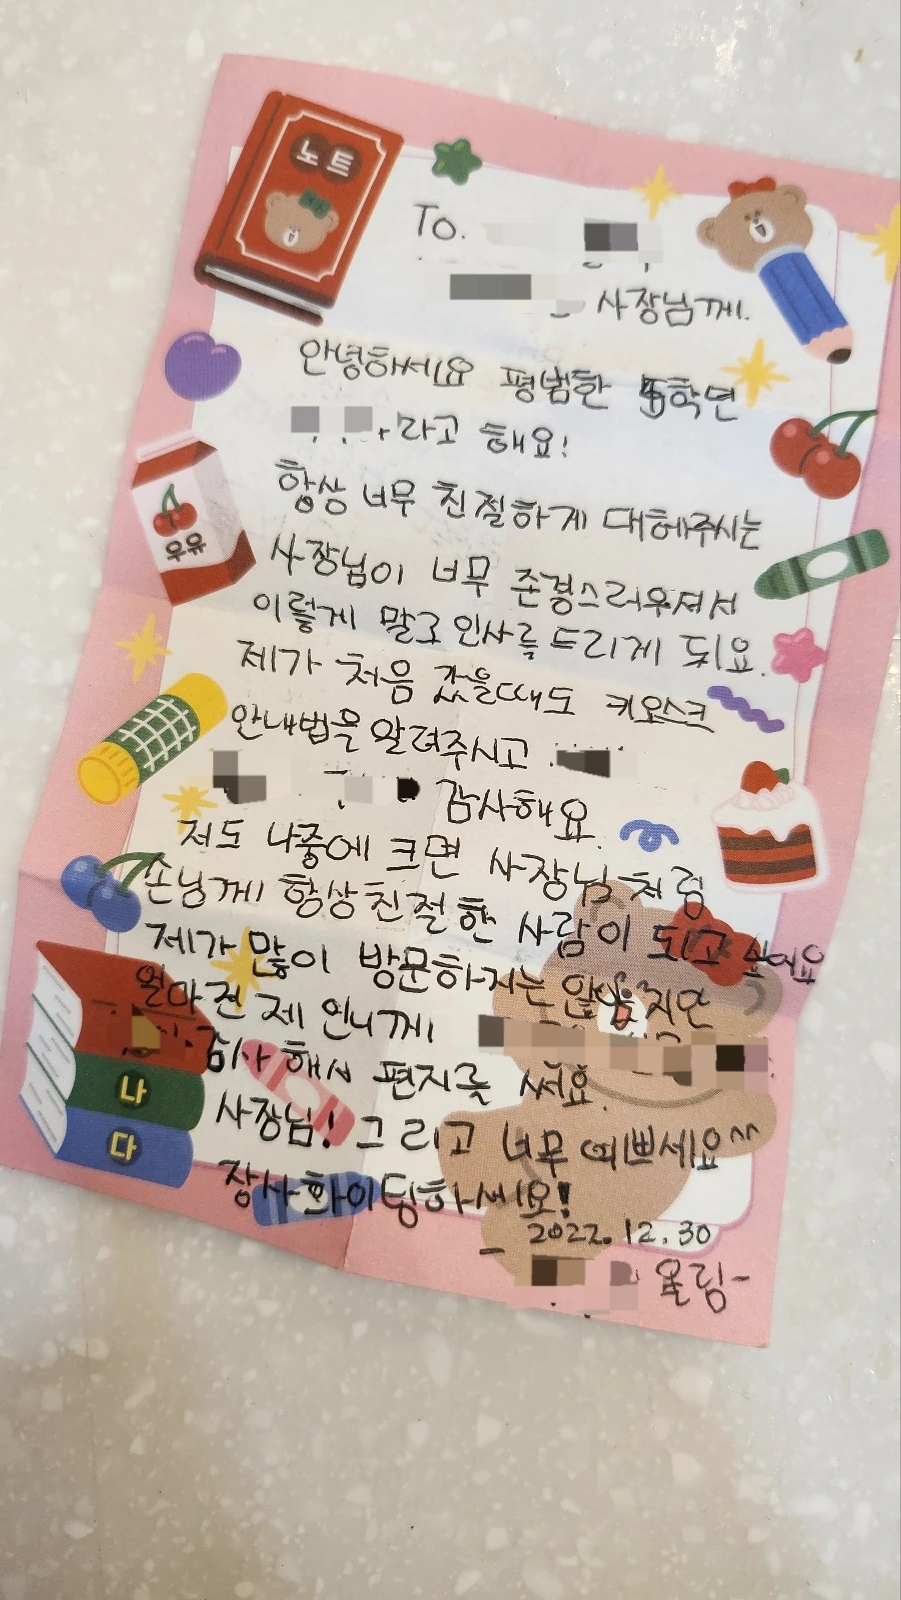 노트
To.
사장님께.
안녕하세요 평범한 5학년
라고 해요!
항상 너무 친절하게 대해주시는
우유
사장님이 너무 존경스러우셔서
이렇게 말로 인사를 드리게 되요.
제가 처음 갔을때도 키오스크
안내법을 알려주시고
감사해요.
저도 나중에 크면 사장님 처럼
손님께 항상 친절한 사람이 되고 싶어요
제가 많이 방문하지는 않았지만
얼마전 제 언니께
감사해서 편지를 써요.
나
사장님! 그리고 너무 예쁘세요^^
다
장사 화이팅하세요!
2022.12.30
올림-